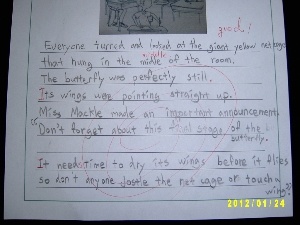 good!
Everyone turned and looked at the giant yellow net cage
that hung in the middle of the room.
The butterfly was perfectly still.
Its wings were pointing straight up.
Miss Mackle made an important announcement.
"Don't forget about this final stage of the
butterfly.
It need time to dry its wings before it flies
so don't anyone jostle the net cage or touch a
wing?"
2012/01/24